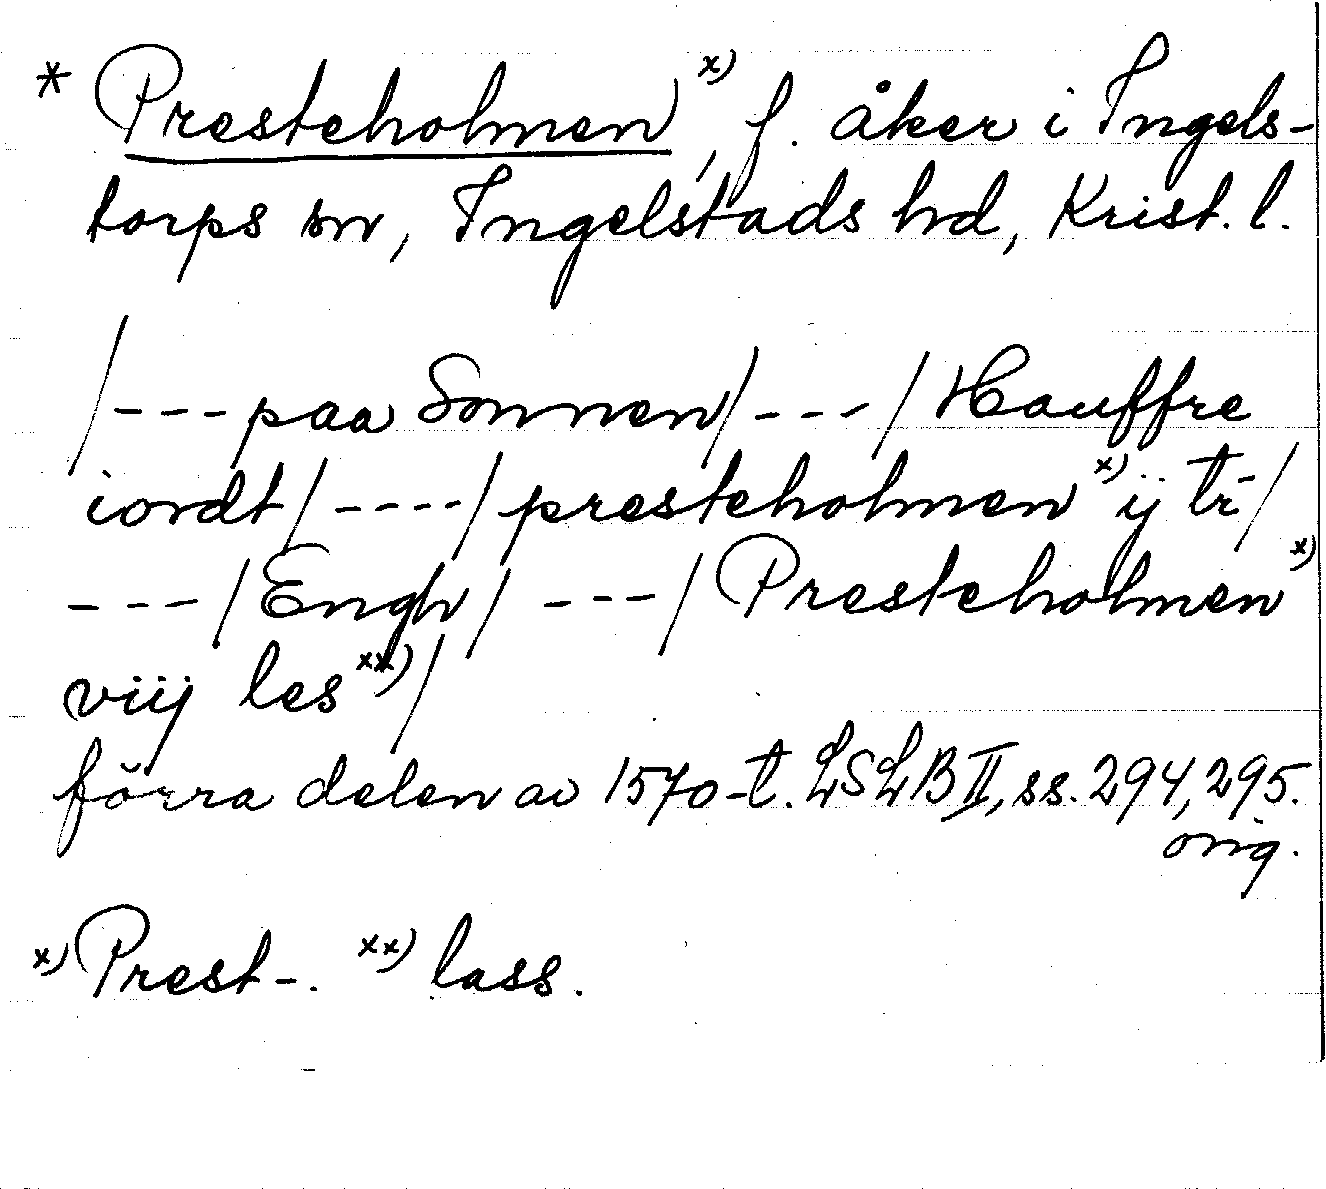 * Presteholmen x), f. åker i Ingels-
torps sn, Ingelstads hd, Krist. l.
/---paa Sonnen/---/Hauffre
iordt/----/presteholmen x) ij tr/
---/Engh/ ---/Presteholmen x)
viij les xx)/
förra delen av 1570-t. LSLB II, ss. 294, 295.
orig.
x) Prest-. xx) lass.